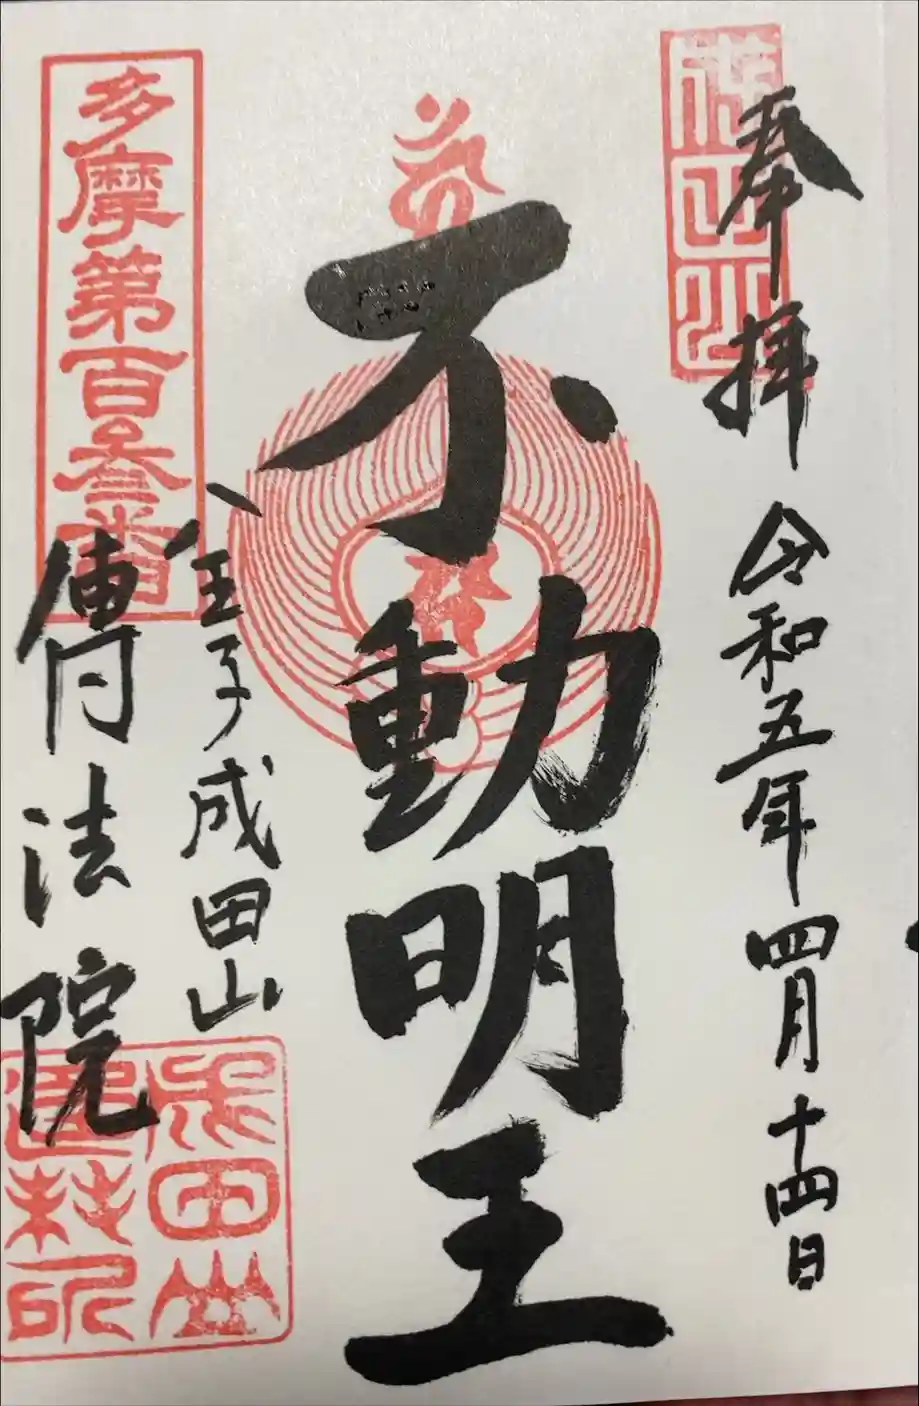 奉拝
令和五年四月十四日
不動明王
八王子成田山
傳法院
多摩第百叁番
成田山